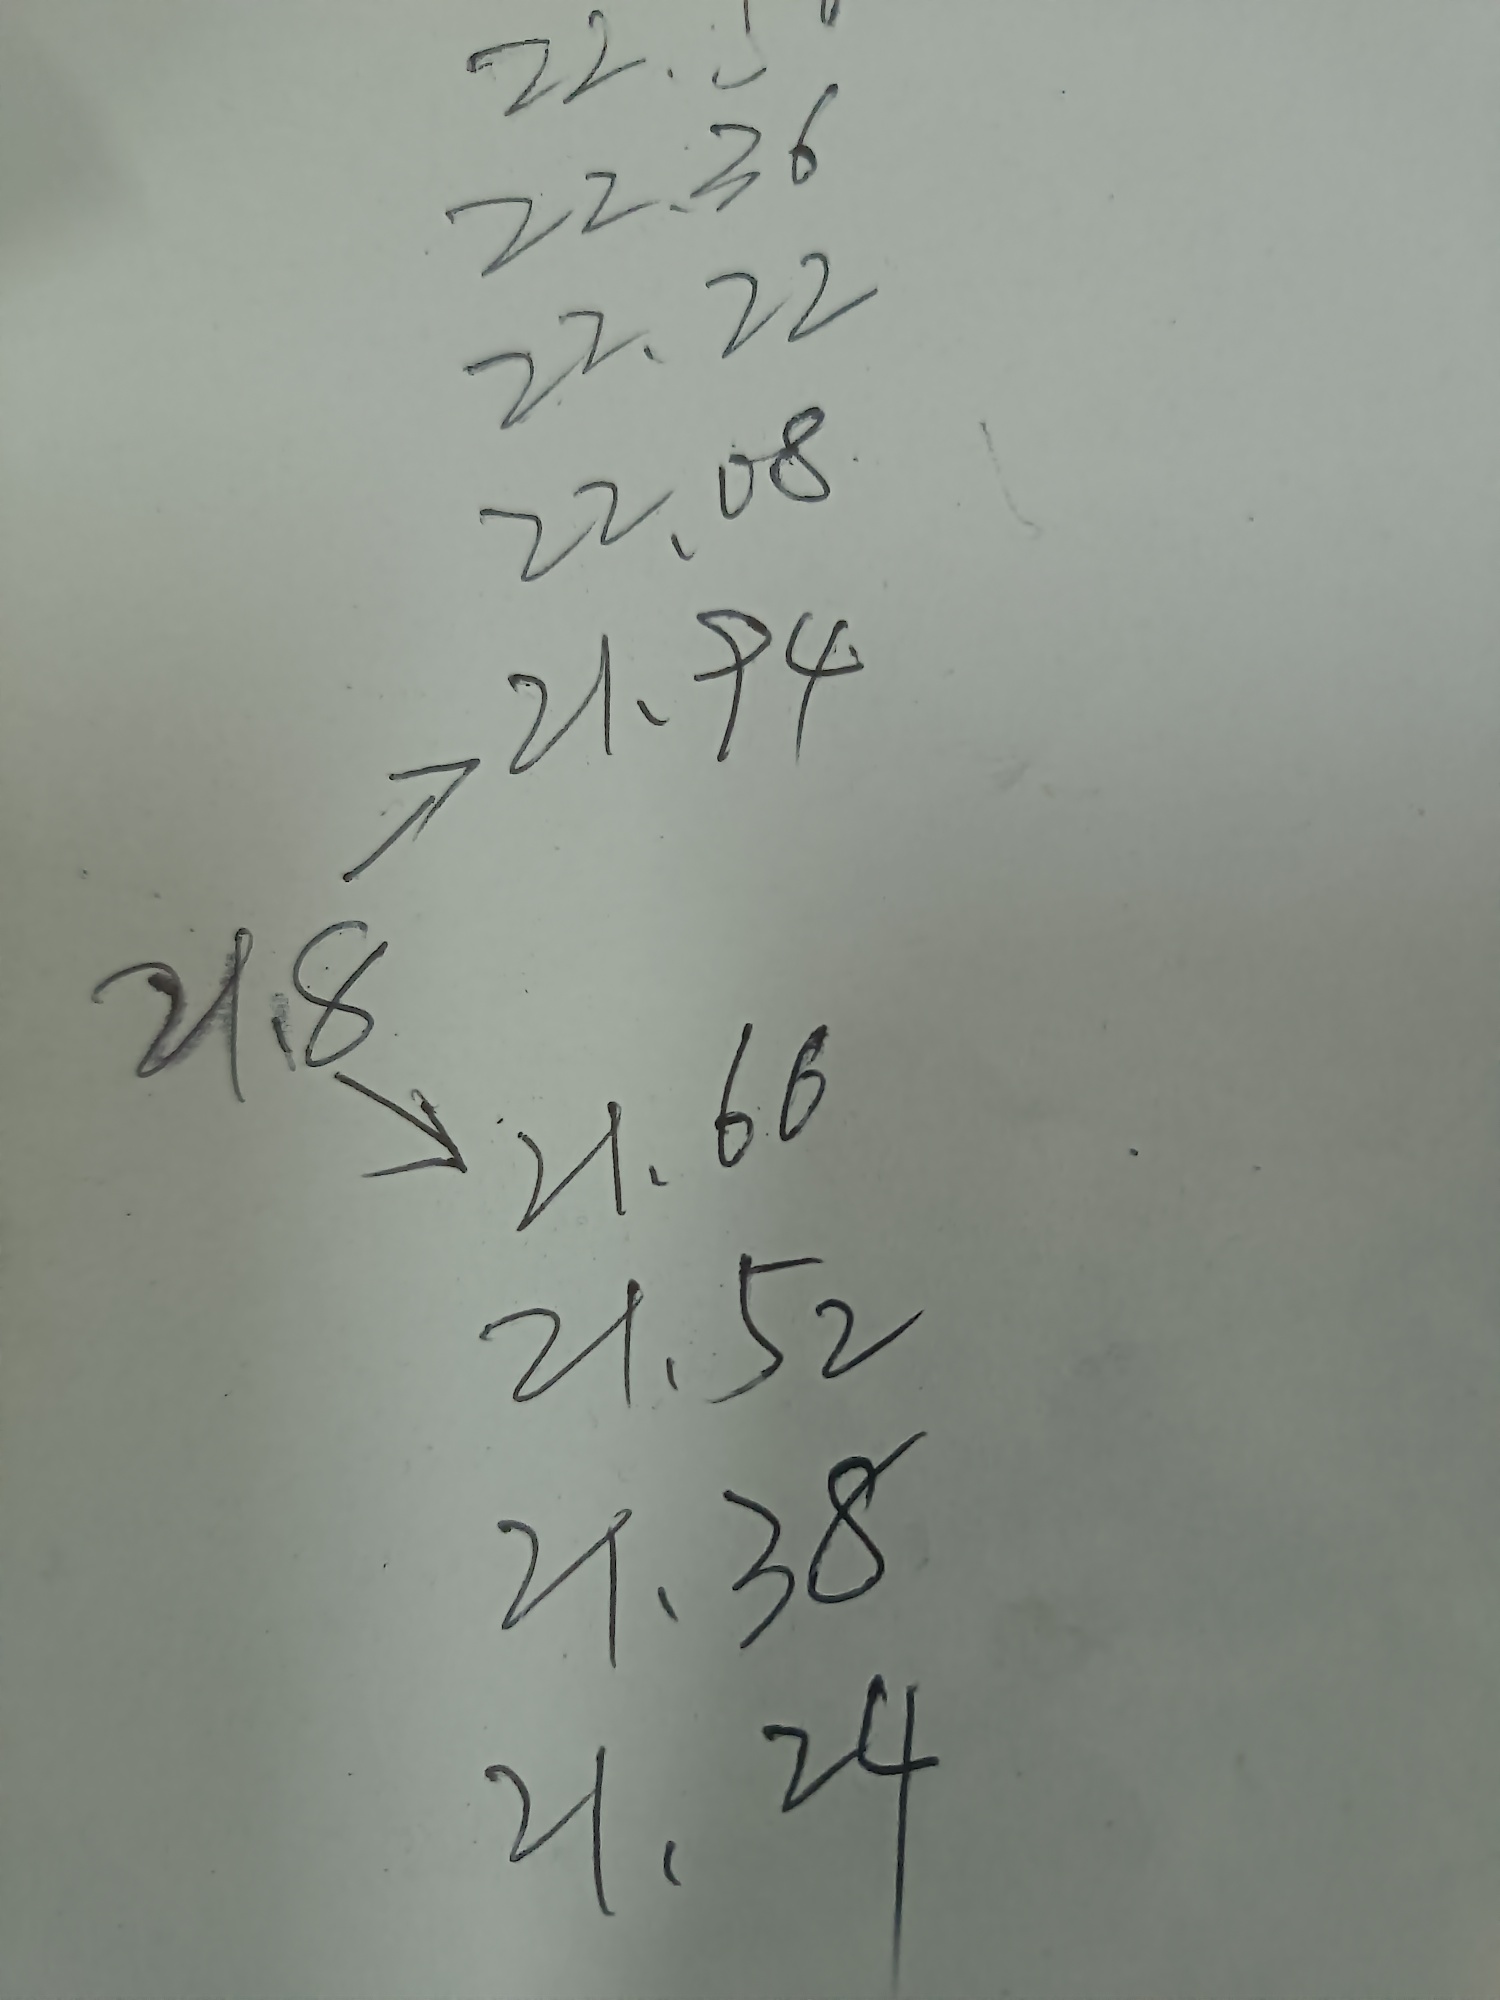 22.5
22.36
22.22
22.08
21.94
21.8
21.66
21.52
21.38
21.24